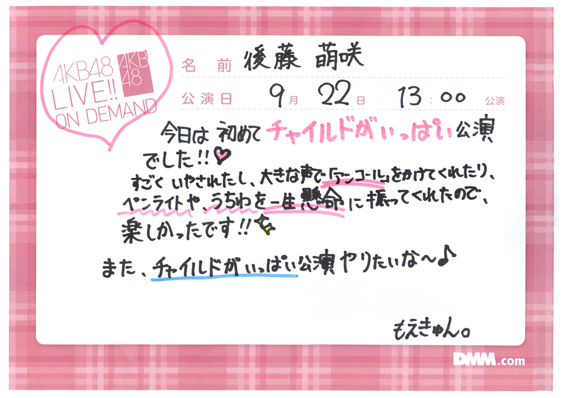 AKB48
LIVE!!
ON DEMAND
AKB
48
名 前 後藤 萌咲
公演日 9月 22日 13:00 公演
今日は 初めて チャイルドがいっぱい公演
でした!!♡
すごく いやされたし、大きな声で「アンコール」をかけてくれたり、
ペンライトや、うちわを一生懸命に振ってくれたので、
楽しかったです!!
また、チャイルドがいっぱい公演やりたいな〜♪
もえきゅん。
DMM.com